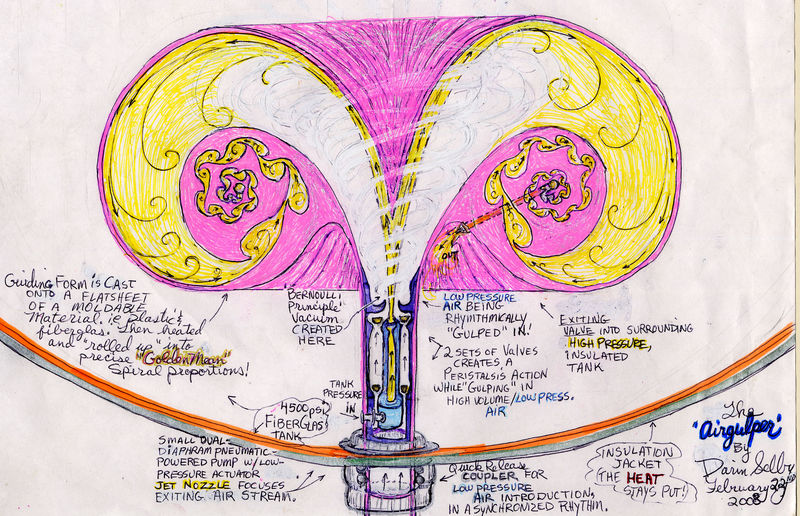 OUT
Guiding FORM is CAST
ONTO A FLATSHEET
OF A MOLDABLE
Material, ie Plastic &
fiberglas. Then heated
and "rolled up" into
precise "Golden Mean"
Spiral proportions!
BERNOULLI
Principle
Vacuum
CREATED
HERE
LOW PRESSURE
AIR BEING
RHYHTHMICALLY
"GULPED" IN.
2 SETS OF VALVES
CREATES, A
PERISTALSIS ACTION
WHILE "GULPING" IN
HIGH VOLUME/LOW PRESS.
AIR
EXITING
VALVE INTO SURROUNDING
HIGH PRESSURE,
INSULATED
TANK
TANK
PRESSURE
IN
4500 psi
FIBERGLAS
TANK
SMALL DUAL-
DIAPHRAM PNEUMATIC-
POWERED PUMP W/LOW-
PRESSURE ACTUATOR
JET NOZZLE FOCUSES
EXITING AIR STREAM.
Quick Release
COUPLER FOR
LOW PRESSURE
AIR INTRODUCTION,
IN A SYNCHRONIZED RHYTHM.
INSULATION
JACKET
(THE HEAT
STAYS PUT!)
The
'Airgulper'
By
Darin Selby
February 22nd
2008